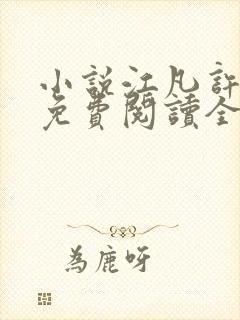 小說江凡許
免費閱讀全
為鹿呀